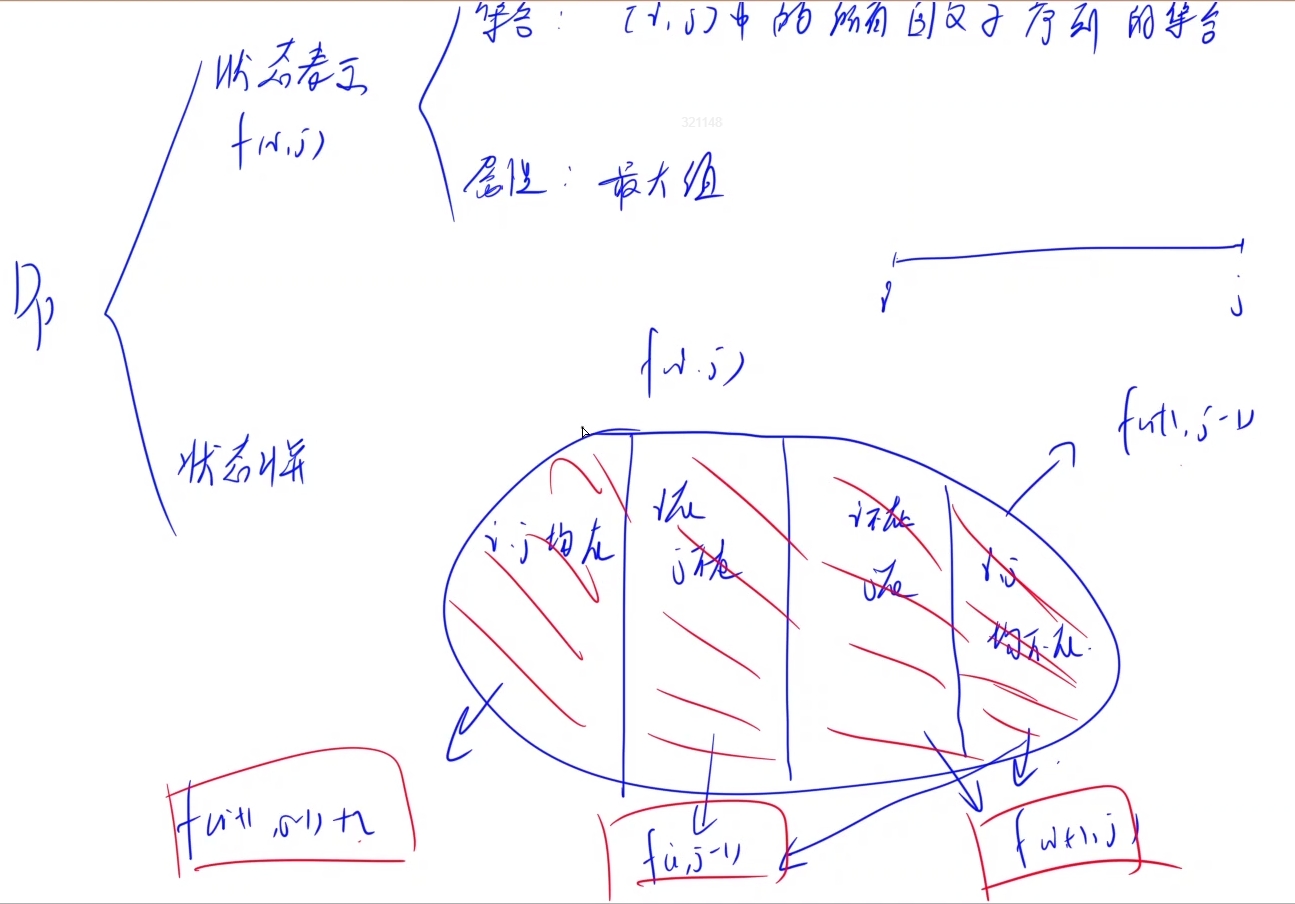 集合： [i,j]中的所有回文子序列的集合
状态表示
f(i,j)
321148
属性：最大值
Dp
i
j
f(i.j)
f(i+1,j-1)
状态计算
i.j均在
i在
j不在
i不在
j在
i,j
均不在
f(i+1,j-1)+2
f(i,j-1)
f(i+1,j)